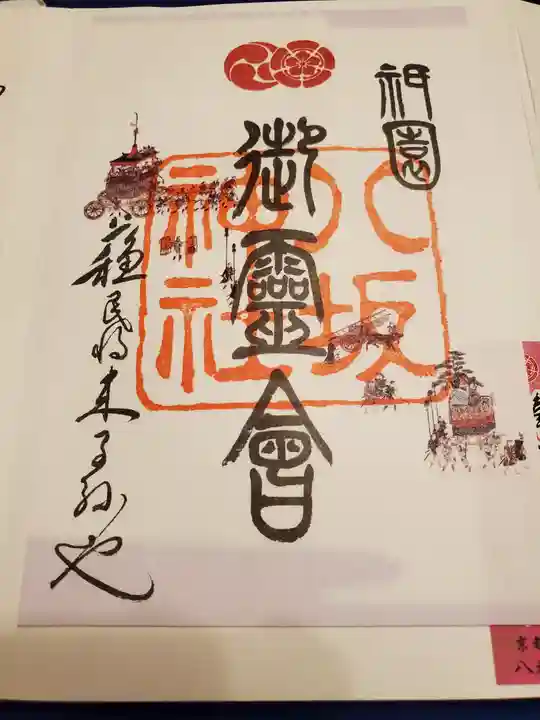 祇園
御靈會
八坂
神社
蘓民将来子孫也
京都
八坂